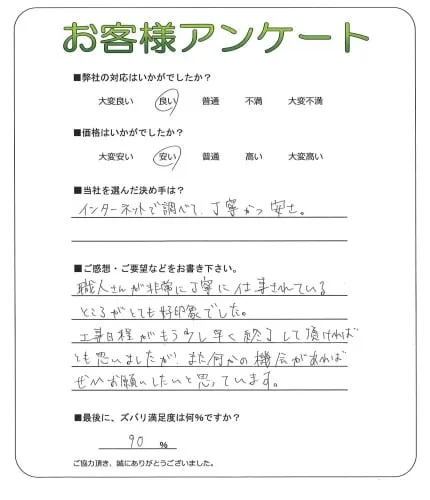 お客様アンケート
■弊社の対応はいかがでしたか？
大変良い 良い 普通 不満 大変不満
■価格はいかがでしたか？
大変安い 安い 普通 高い 大変高い
■当社を選んだ決め手は？
インターネットで調べて、丁寧かつ安さ。
■ご感想・ご要望などをお書き下さい。
職人さんが非常に丁寧に仕事されている
ところがとても好印象でした。
工事日程がもう少し早く終了して頂ければ
とも思いましたが、また何かの機会があれば
ぜひお願いしたいと思っています。
■最後に、ズバリ満足度は何％ですか？
90 ％
ご協力頂き、誠にありがとうございました。